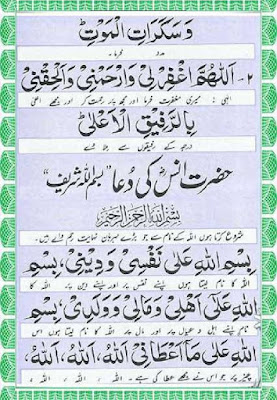 وَسَكَرَاتِ الْمَوْتِ
مدد فرما۔
۲- اَللّٰهُمَّ اغْفِرْ لِيْ وَارْحَمْنِيْ وَاَلْحِقْنِيْ
الٰہی : میری مغفرت فرما اور مجھ پر رحمت کر اور مجھے اعلیٰ
بِالرَّفِيْقِ الْاَعْلٰى
درجہ کے رفیقوں سے ملا دے
حضرت انسؓ کی دُعا “بسم اللہ شریف”
بِسْمِ اللهِ الرَّحْمٰنِ الرَّحِيْمِ
شروع کرتا ہوں اللہ کے نام سے جو بڑے مہربان نہایت رحم والے ہیں۔
بِسْمِ اللهِ عَلٰى نَفْسِيْ وَدِيْنِيْ، بِسْمِ
اللہ کا نام لیتا ہوں اپنے نفس پر اور اپنے دین پر اللہ کا
اللهِ عَلٰى اَهْلِيْ وَمَالِيْ وَوَلَدِيْ، بِسْمِ
نام اپنے اہل و عیال پر اور مال پر اللہ کا نام لیتا ہوں اس
اللهِ عَلٰى مَا اَعْطَانِيْ اَللهُ، اَللهُ، اَللهُ،
چیز پر جو اس نے مجھے عطا کی ہے۔ اللہ ، اللہ ، اللہ ،